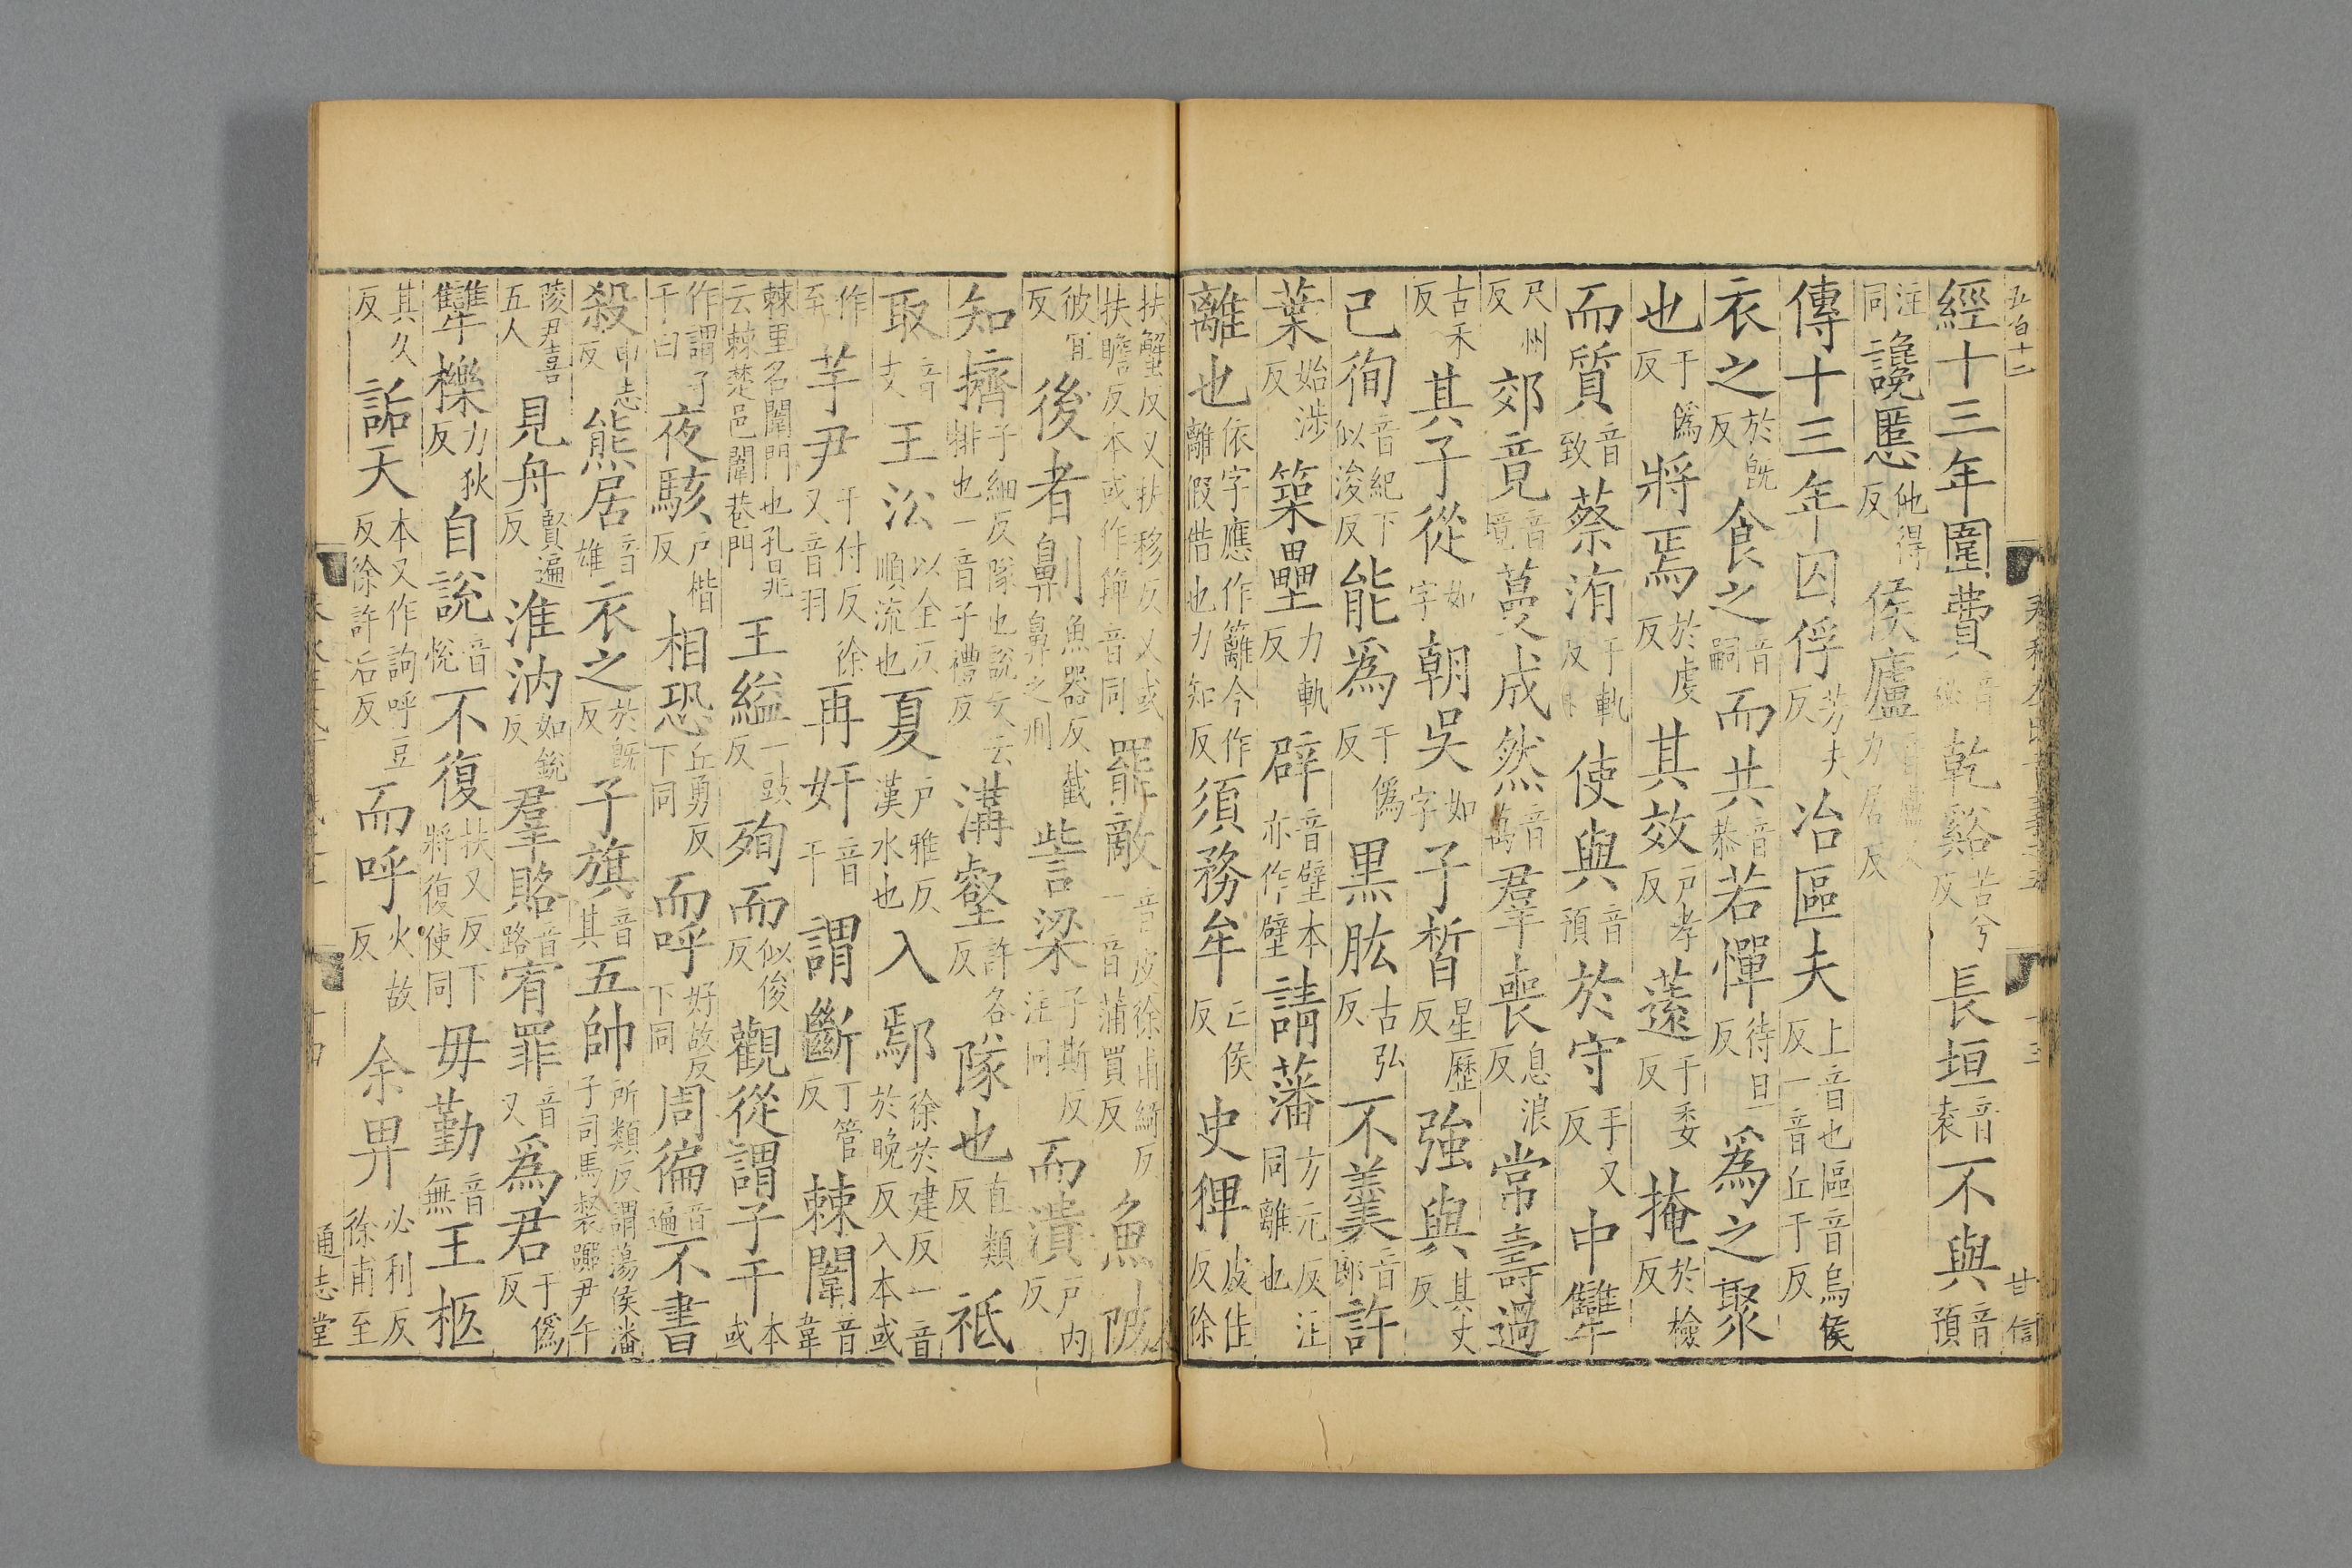 經十三年圍費音祕乾谿苦兮反長垣音袁不與音預
注同讒慝他得反侯廬力居反
傳十三年囚俘芳夫反冶區夫上音也區音烏侯反一音丘于反
衣之於旣反食之音嗣而共音恭若憚待旦反爲之聚
也于僞反將焉於虔反其效戸孝反薳于委反掩於檢反
而質音致蔡洧于軌反使與音預於守手又反中犫
尺州反郊竟音境蔓成然音萬羣喪息浪反常壽過
古禾反其子從如字朝吳如字子皙星歷反強與其丈反
已徇音紀下似浚反能爲于僞反黒肱古弘反不羹音郎許
葉始涉反築壘力軌反辟音壁本亦作壁請藩方元反注同離也
離也依字應作籬今作離假借也力知反須務牟亡侯反史猈皮佳反徐
扶蟹反又扶移反又或扶瞻反本或作𥱼音同罷敵音皮徐甫綺反一音蒲買反魚陂
彼冝反後者劓魚器反截鼻鼻之刑訾梁子斯反注同而潰戸内反
知擠子細反隊也說文云排也一音子禮反溝壑許各反隊也直類反祗
取音支王沿以全反順流也夏戸雅反漢水也入鄢徐於建反一音於晚反入本或
作至芋尹于付反徐又音羽再奸音干謂斷丁管反棘闈音韋
棘里名闈門也孔晁云棘楚邑闈巷門王縊一豉反殉而似俊反觀從謂子干本或
作謂子干曰夜駭戸楷反相恐丘勇反下同而呼好故反下同周徧音遍不書
殺申志反熊居音雄衣之於旣反子旗音其五帥所類反謂蕩侯潘子司馬裻嚻尹午
陵尹喜五人見舟賢遍反淮汭如銳反羣賂音路宥罪音又爲君于僞反
犫櫟力狄反自說音悅不復扶又反下將復使同毋勤音無王柩
其久反詬天本又作訽呼豆反徐許后反而呼火故反余畀必利反徐甫至
通志堂